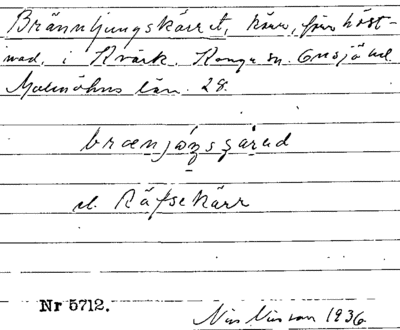 Brännljungskärret, kärr, förr höst-
mad, i Kvärk, Konga sn. Onsjö hd.
Malmöhus län. 28.
brænjåŋsɟärad
el. Räfsekärr
Nr 5712.
Nils Nilsson 1936